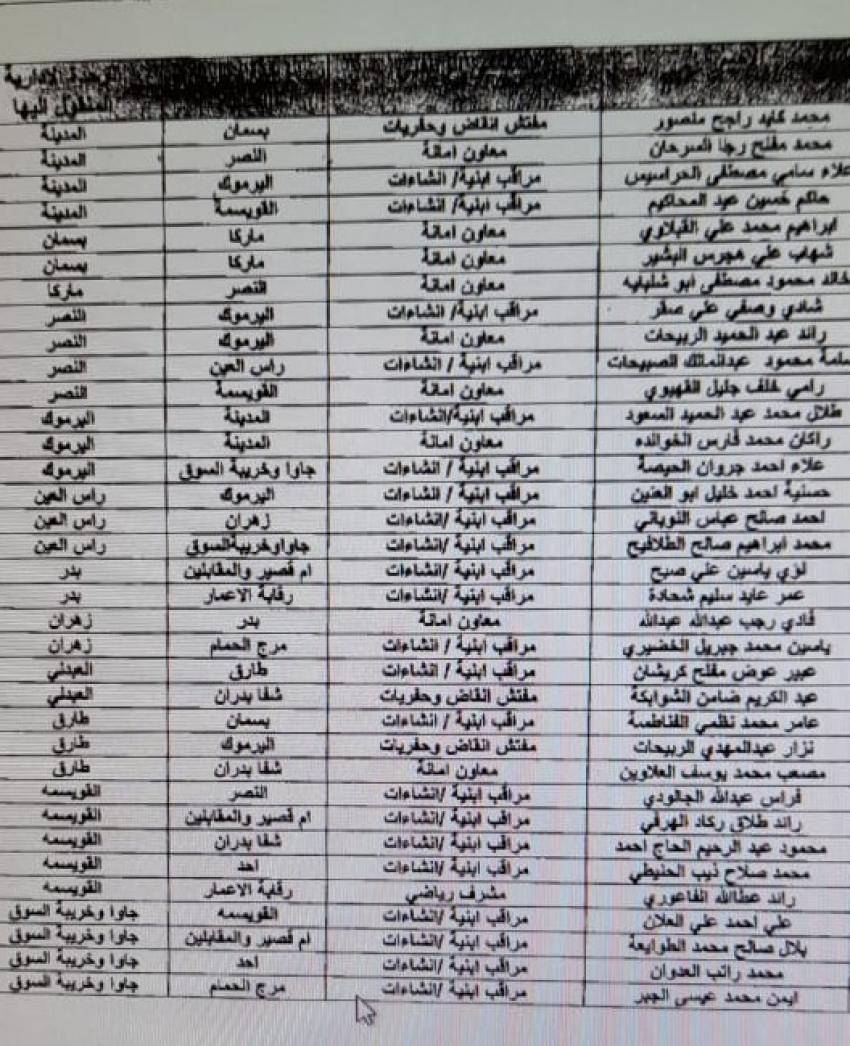 الوحدة الادارية المنقول اليها
محمد كايد راجح منصور مفتش انقاض وحفريات بسمان المدينة
محمد مفلح رجا السرحان معاون امانة النصر المدينة
علاء سامي مصطفى الحراسيس مراقب ابنية/ انشاءات اليرموك المدينة
حاكم حسين عبد المحاكيم مراقب ابنية/ انشاءات القويسمة المدينة
ابراهيم محمد علي القبلاوي معاون امانة ماركا بسمان
شهاب علي هجرس البشير معاون امانة ماركا بسمان
خالد محمود مصطفى ابو شلبايه معاون امانة النصر ماركا
شادي وصفي علي صقر مراقب ابنية/ انشاءات اليرموك النصر
رائد عبد الحميد الربيحات معاون امانة اليرموك النصر
سلمة محمود عبدالملك الصبيحات مراقب ابنية / انشاءات راس العين النصر
رامي خلف جليل الفهيوي معاون امانة القويسمة النصر
طلال محمد عبد الحميد السعود مراقب ابنية/انشاءات المدينة اليرموك
راكان محمد فارس الخوالده معاون امانة المدينة اليرموك
علاء احمد جروان الحيصة مراقب ابنية / انشاءات جاوا وخريبة السوق اليرموك
حسنية احمد خليل ابو العنين مراقب ابنية / انشاءات اليرموك راس العين
احمد صالح عباس النوباني مراقب ابنية /انشاءات زهران راس العين
محمد ابراهيم صالح الطلافيح مراقب ابنية /انشاءات جاواوخريبةالسوق راس العين
لؤي ياسين علي صبح مراقب ابنية /انشاءات ام قصير والمقابلين بدر
عمر عايد سليم شحادة مراقب ابنية /انشاءات رقابة الاعمار بدر
فادي رجب عبدالله عبدالله معاون امانة بدر زهران
ياسين محمد جبريل الخضيري مراقب ابنية / انشاءات مرج الحمام زهران
عبير عوض مفلح كريشان مراقب ابنية / انشاءات طارق العبدلي
عبد الكريم ضامن الشوابكة مفتش انقاض وحفريات شفا بدران العبدلي
عامر محمد نظمي الغناطسة مراقب ابنية / انشاءات بسمان طارق
نزار عبدالمهدي الربيحات مفتش انقاض وحفريات اليرموك طارق
مصعب محمد يوسف العلاوين معاون امانة شفا بدران طارق
فراس عبدالله الجالودي مراقب ابنية /انشاءات النصر القويسمه
رائد طلاق ركاد الهرفي مراقب ابنية /انشاءات ام قصير والمقابلين القويسمه
محمود عبد الرحيم الحاج احمد مراقب ابنية /انشاءات شفا بدران القويسمه
محمد صلاح ذيب الحنيطي مراقب ابنية /انشاءات احد القويسمه
رائد عطاالله الفاعوري مشرف رياضي رقابة الاعمار القويسمه
علي احمد علي العلان مراقب ابنية /انشاءات القويسمه جاوا وخريبة السوق
بلال صالح محمد الطوايعة مراقب ابنية /انشاءات ام قصير والمقابلين جاوا وخريبة السوق
محمد راتب العدوان مراقب ابنية /انشاءات احد جاوا وخريبة السوق
ايمن محمد عيسى الجبر مراقب ابنية /انشاءات مرج الحمام جاوا وخريبة السوق